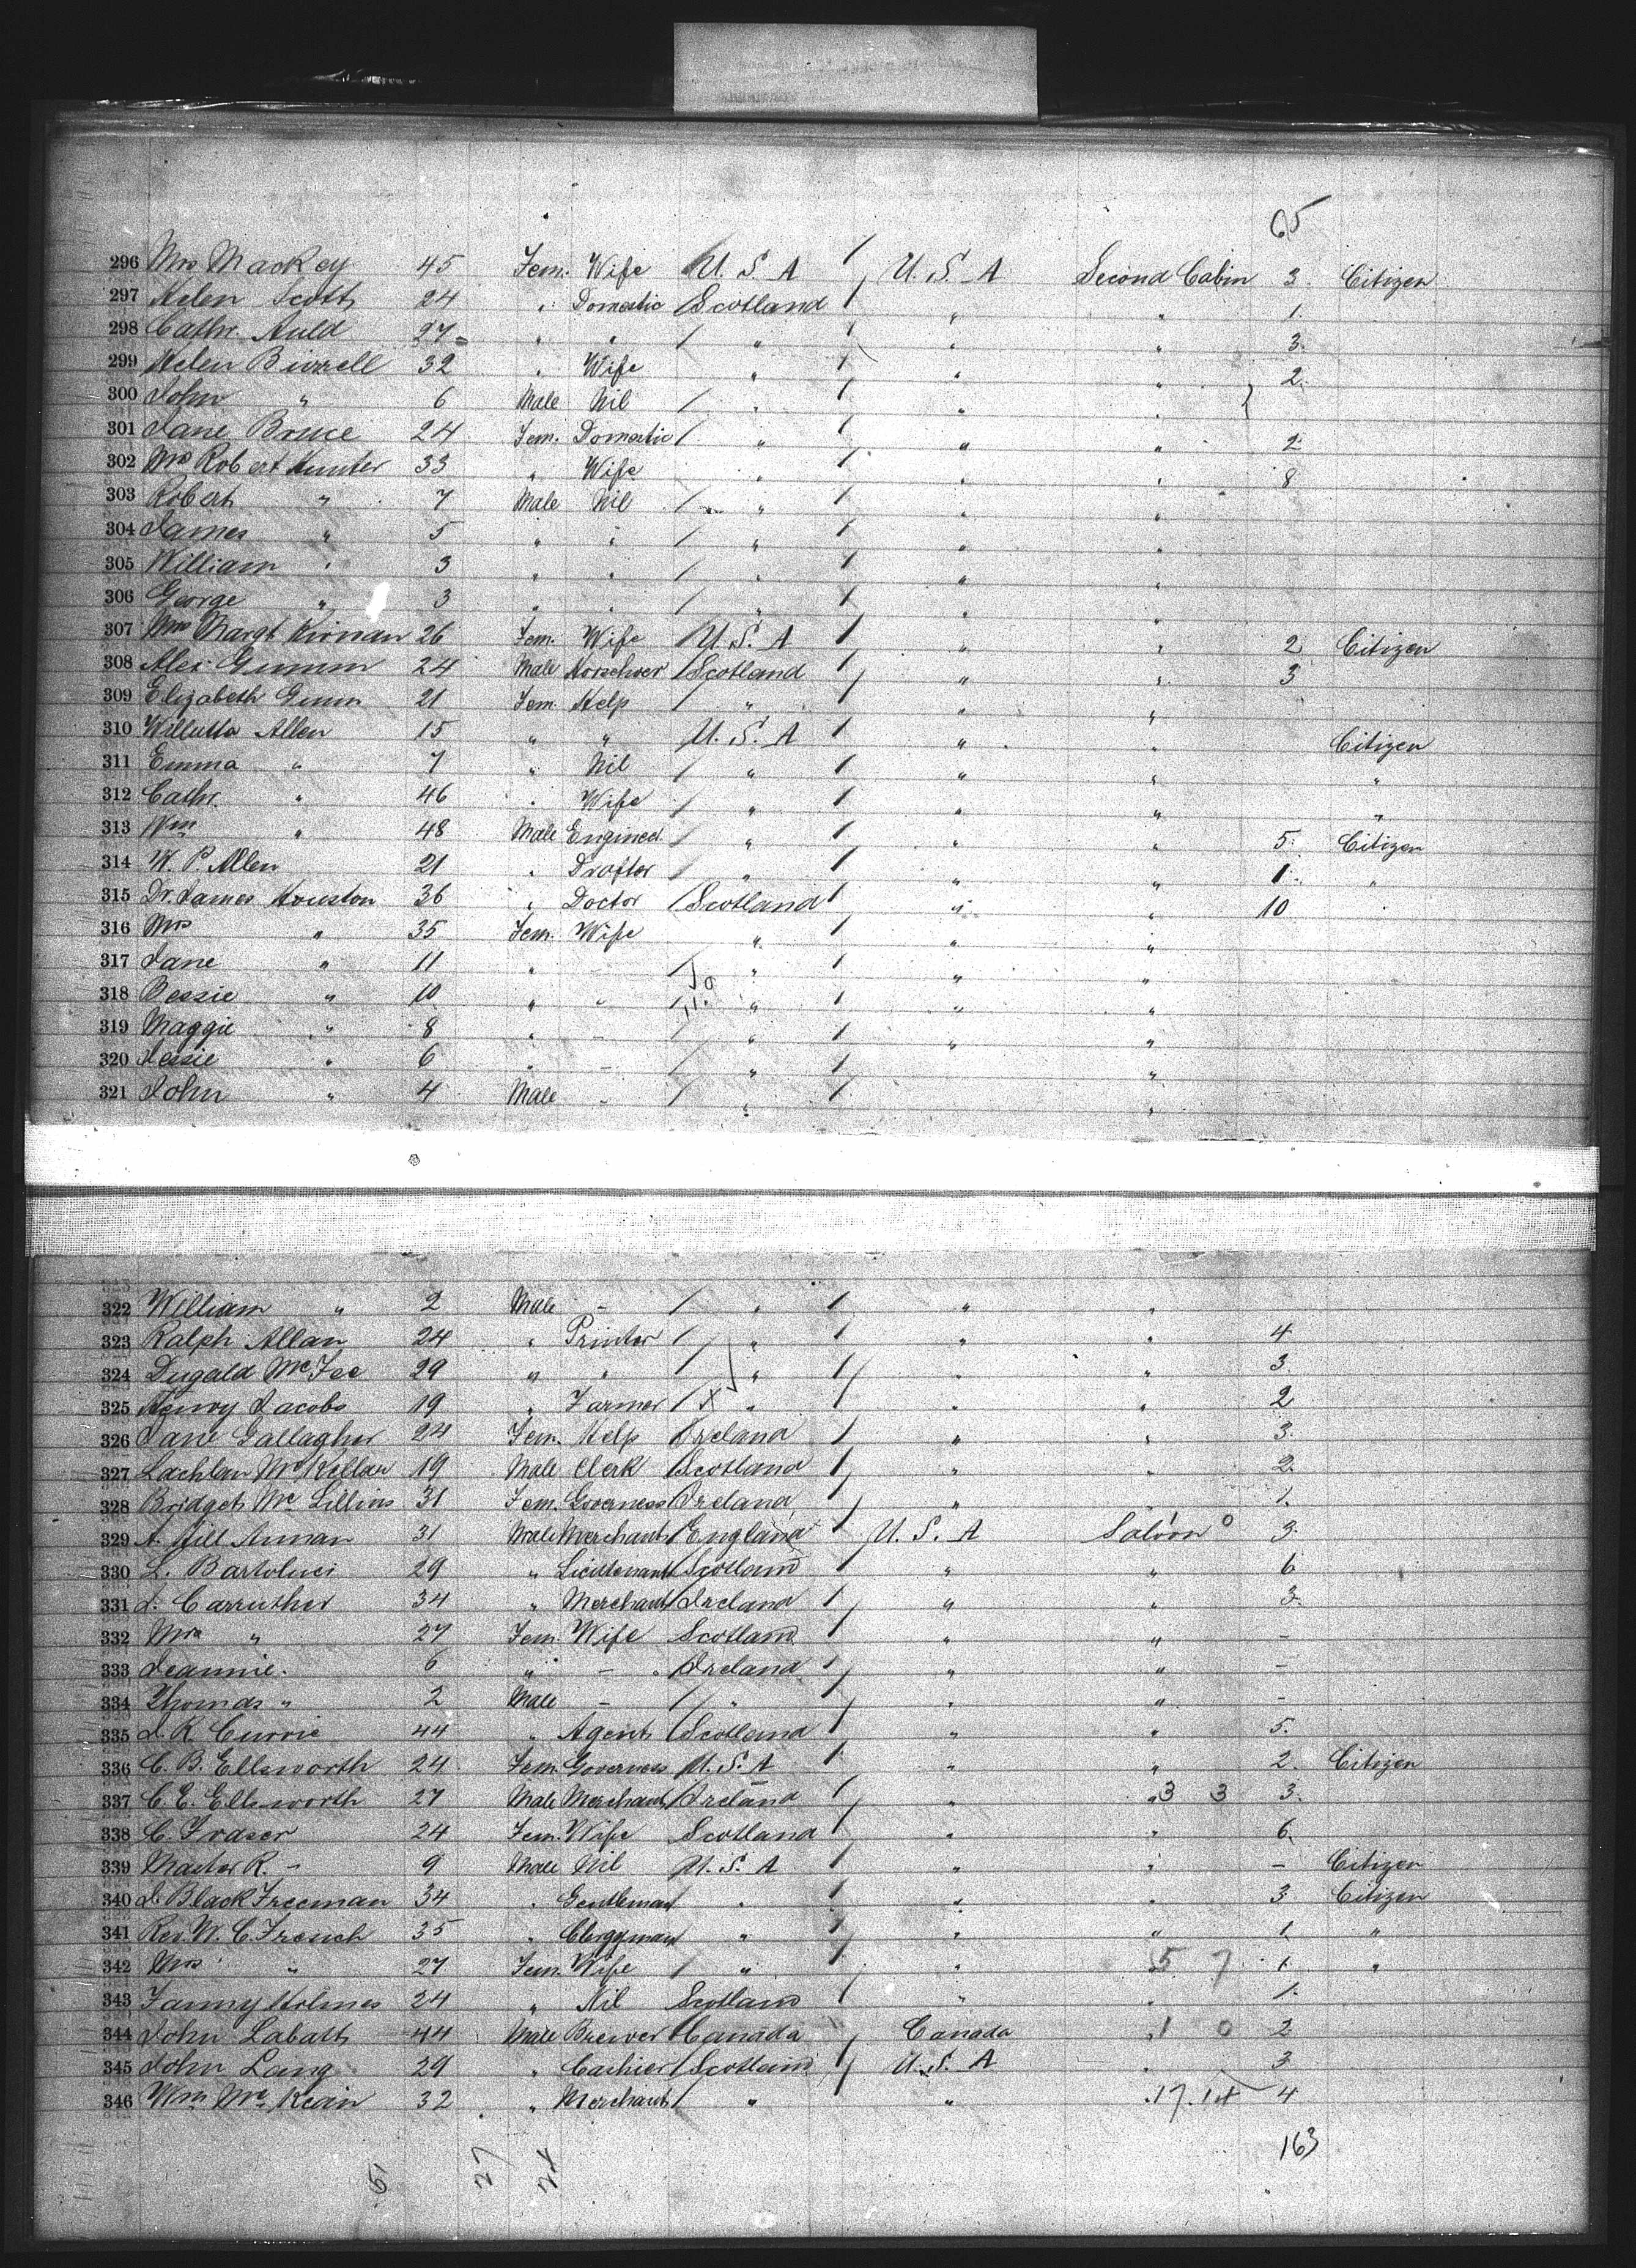 65
296 Mrs Mackey 45 Fem. Wife U.S.A U.S.A Second Cabin 3. Citizen
297 Helen Scott 24 " Domestic Scotland " " 1.
298 Cathr. Auld 27 " " " " " 3.
299 Helen Birrell 32 " Wife " " " 2.
300 John " 6 Male Nil " " "
301 Jane Bruce 24 Fem. Domestic " " " 2
302 Mrs Robert Hunter 33 " Wife " " " 8
303 Robert " 7 Male Nil " " "
304 James " 5 " " " " "
305 William " 3 " " " " "
306 George " 3 " " " " "
307 Mrs Margt Kirnan 26 Fem. Wife U.S.A " " 2 Citizen
308 Alex. Gunn 24 Male Horseshoer Scotland " " 3
309 Elizabeth Gunn 21 Fem. Help " " "
310 Allen 15 " " U.S.A " " Citizen
311 Emma " 7 " Nil " " " "
312 Cathr. " 46 " Wife " " " "
313 Wm " 48 Male Engineer " " " 5. Citizen
314 W. P. Allen 21 " Drafter " " " 1. "
315 Dr. James Houston 36 " Doctor Scotland " " 10
316 Mrs " 35 Fem. Wife " " "
317 Jane " 11 " " " "
318 Bessie " 10 " " " " "
319 Maggie " 8 " - " " "
320 Jessie " 6 " - " "
321 John " 4 Male " " "
322 William " 2 Male - " " "
323 Ralph Allan 24 " Printer " " " 4
324 Dugald McFee 29 " " " " " 3.
325 Henry Jacobs 19 " Farmer X " " " 2
326 Jane Gallagher 24 Fem. Help Ireland " " 3.
327 Lachlan McKellar 19 Male Clerk Scotland " " 2.
328 Bridget Mc 31 Fem. Governess Ireland " " 1.
329 A. Hill Annan 31 Male Merchant England U.S.A Saloon 3.
330 L. Bartoluci 29 " Lieutenant Scotland " " 6
331 J. Carruther 34 " Merchant Ireland " " 3.
332 Mrs " 27 Fem. Wife Scotland " " -
333 Jeannie. 6 " - Ireland " " -
334 Thomas " 2 Male - " " " -
335 J. R. Currie 44 " Agent Scotland " " 5.
336 C. B. Ellsworth 24 Fem. Governess U.S.A " " 2. Citizen
337 C. E. Ellsworth 27 Male Merchant Ireland " " 3 3 3.
338 C. Fraser 24 Fem. Wife Scotland " " 6.
339 Master R. " 9 Male Nil U.S.A " " - Citizen
340 J. Black Freeman 34 " Gentleman " " " 3 Citizen
341 Rev. W. C. French 35 " Clergyman " " " 1. "
342 Mrs " 27 Fem. Wife " " 5 7 1. "
343 Fanny Holmes 24 " Nil Scotland " " 1.
344 John Labatt 44 Male Brewer Canada Canada " 1 0 2
345 John Laing 29 " Cashier Scotland U.S.A " 3
346 Wm McKean 32 " Merchant " " 17.14 4
163
27
24